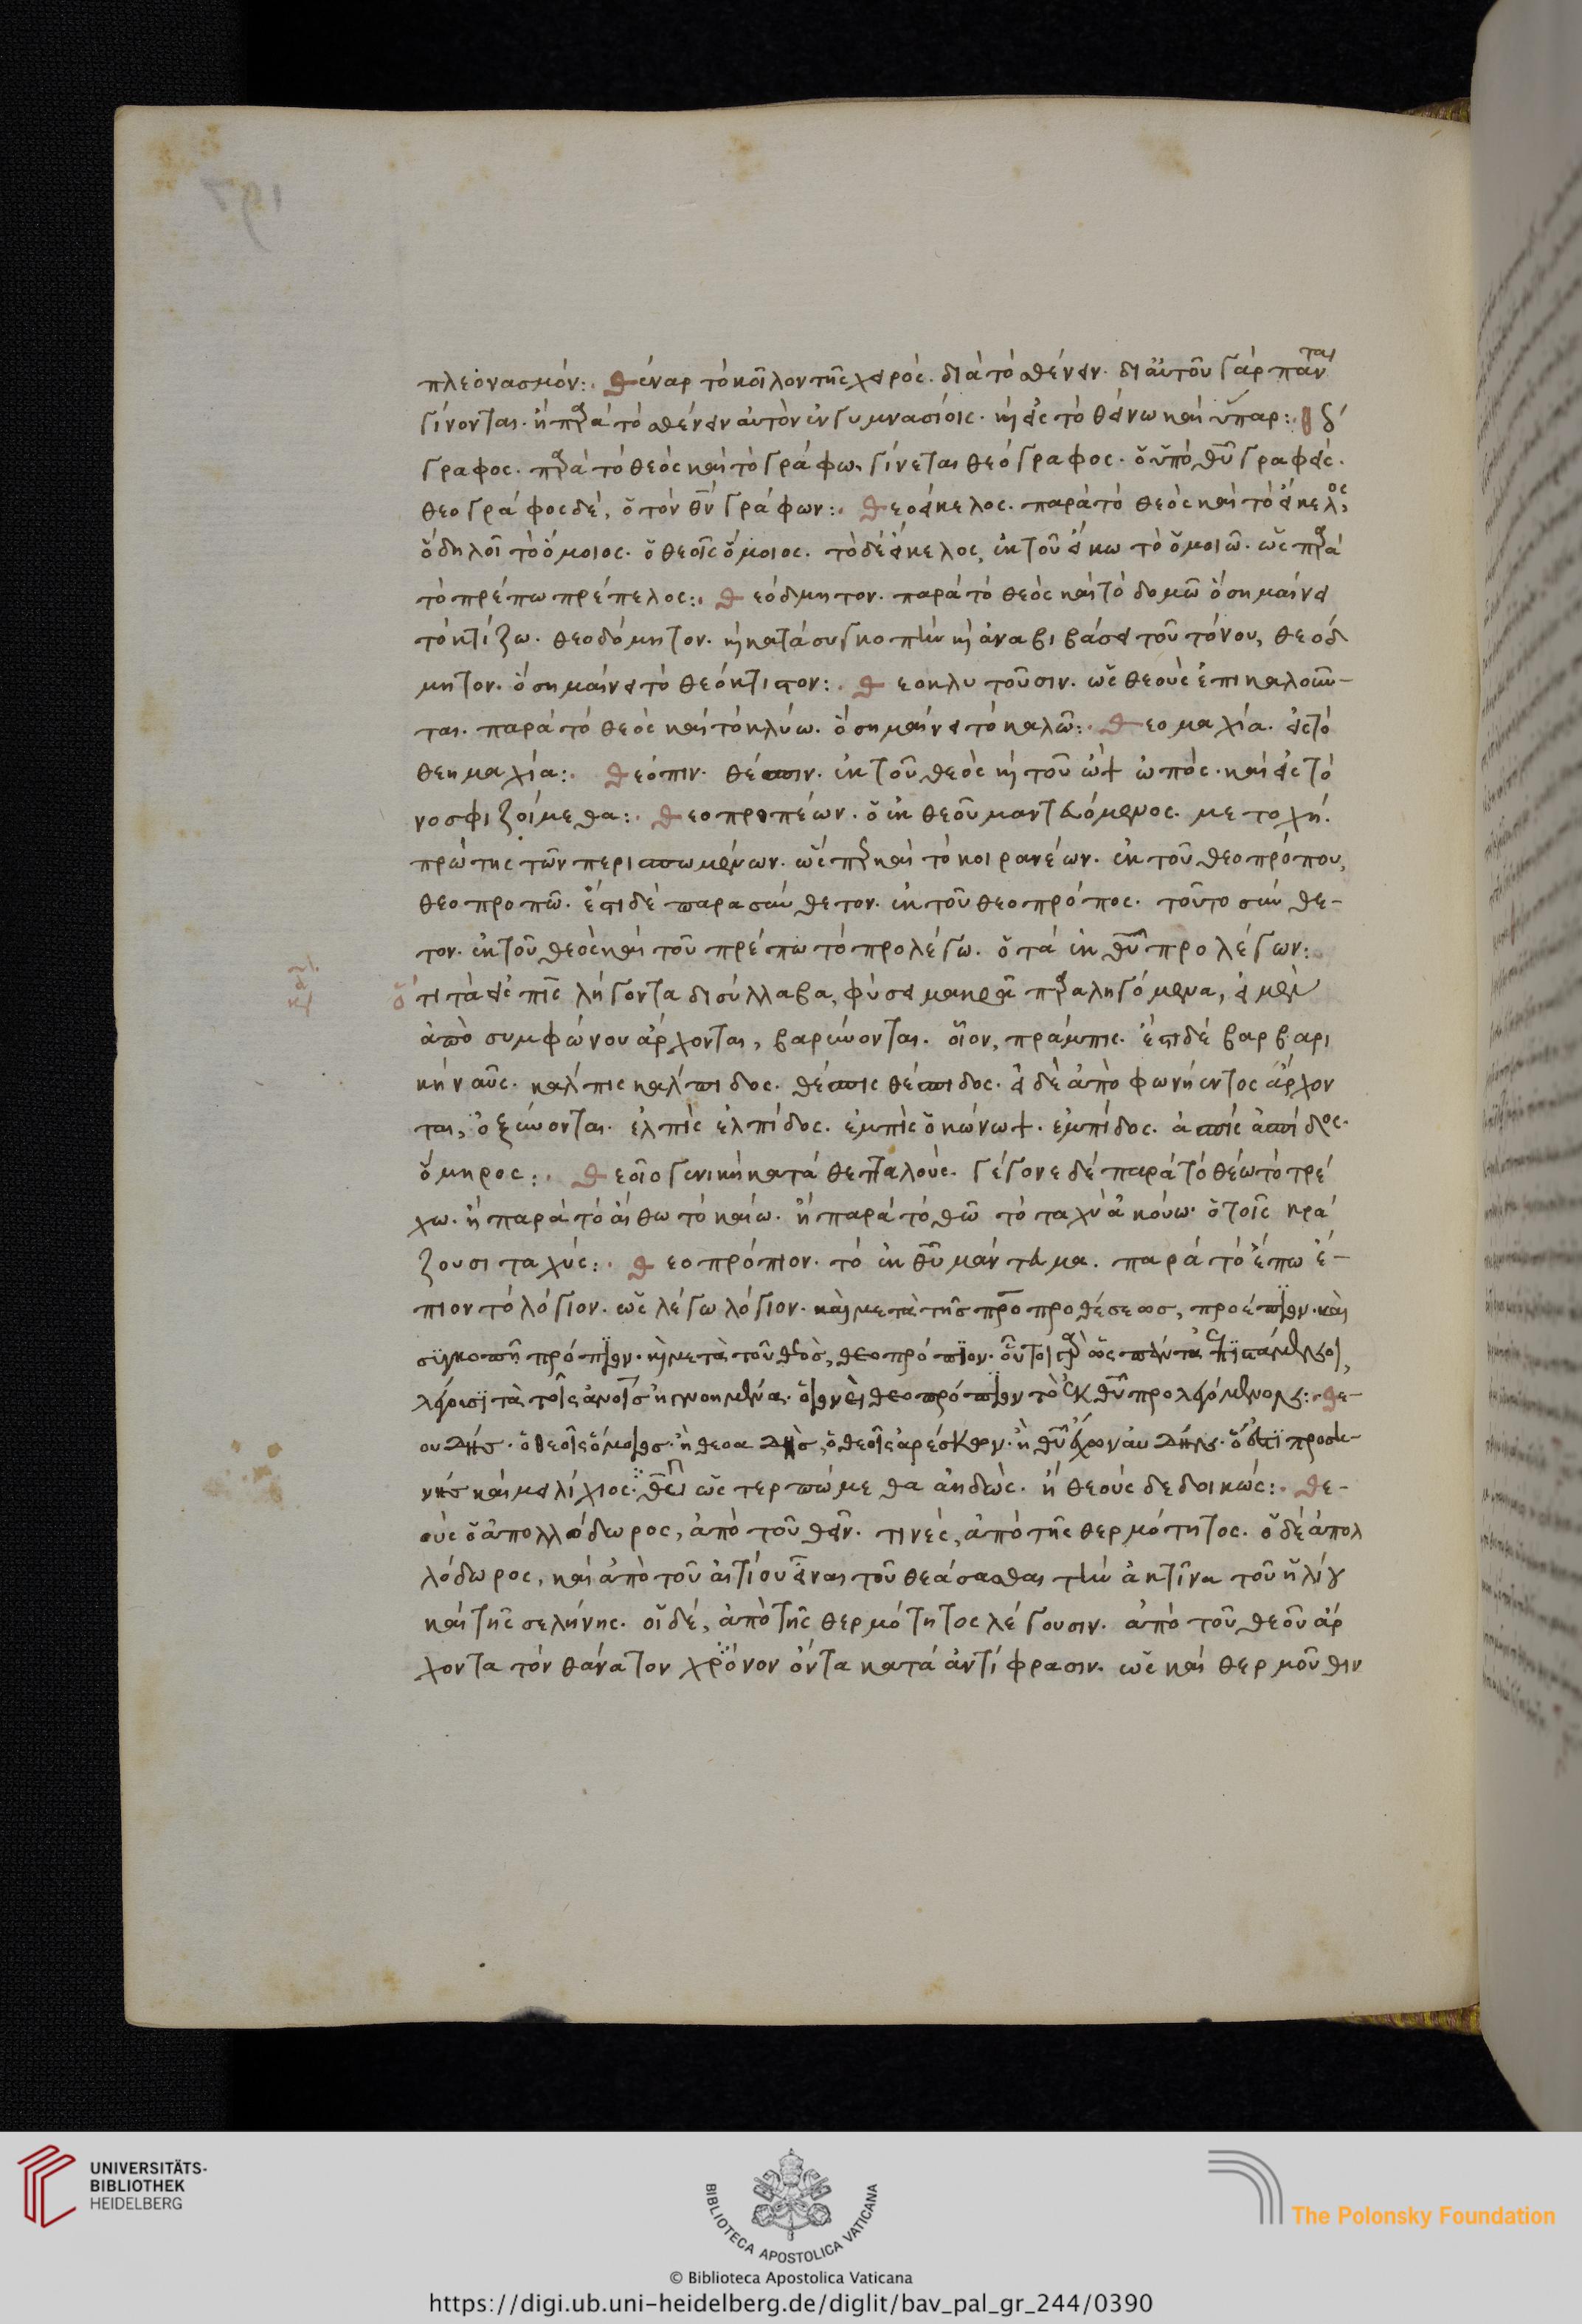 πλεονασμόν:. Θέναρ τὸ κοῖλον τῆς χειρός. διὰ τὸ θένειν. δι αὐτοῦ γὰρ πάντα
γίνονται. ἢ παρὰ τὸ θένειν αὐτὸν ἐν γυμνασίοις. καὶ εἰς τὸ θείνω καὶ ὕπαρ:.
γραφος. παρὰ τὸ θεὸς καὶ τὸ γράφω γίνεται θεόγραφος. ὁ ὑπὸ θῦ γραφείς.
θεογράφος δέ, ὁ τὸν θν γράφων:. Θεοείκελος. παρὰ τὸ θεὸς καὶ τὸ εἴκελος,
ὃ δηλοῖ τὸ ὅμοιος. ὁ θεοῖς ὅμοιος. τὸ δὲ εἴκελος, ἐκ τοῦ εἴκω τὸ ὁμοιῶ. ὡς παρὰ
τὸ πρέπω πρέπελος:. Θεόδμητον. παρὰ τὸ θεὸς καὶ τὸ δομῶ ὃ σημαίνει
τὸ κτίζω. θεοδόμητον. καὶ κατὰ συγκοπὴν καὶ ἀναβιβάσει τοῦ τόνου, θεόδ
μητον. ὃ σημαίνει τὸ θεόκτιστον:. Θεοκλυτοῦσιν. ὡς θεοὺς ἐπικαλοῦν-
ται. παρὰ τὸ θεὸς καὶ τὸ κλύω. ὃ σημαίνει τὸ καλῶ:. Θεομαχία. εἰς τὸ
θεημαχία:. Θεόπιν. θέσπιν. ἐκ τοῦ θεὸς καὶ τοῦ ὢψ ὠπός. καὶ εἰς τὸ
νοσφιζοίμεθα:. Θεοπροπέων. ὁ ἐκ θεοῦ μαντευόμενος. μετοχή.
πρώτης τῶν περισπωμένων. ὡς καὶ τὸ κοιρανέων. ἐκ τοῦ θεοπρόπου,
θεοπροπῶ. ἔστι δὲ παρασύνθετον. ἐκ τοῦ θεοπρόπος. τοῦτο σύνθε-
τον. ἐκ τοῦ θεὸς καὶ τοῦ πρέπω τὸ προλέγω. ὁ τὰ ἐκ θῦ προλέγων:
ὅτι τὰ εἰς πις λήγοντα δισύλλαβα, φύσει μακρᾶ παραληγόμενα, εἰ μὲν
ἀπὸ συμφώνου ἄρχονται, βαρύνονται. οἷον, πράμπις. ἔστι δὲ βαρβαρι
κὴ ναῦς. κάλπις κάλπιδος. θέσπις θέσπιδος. εἰ δὲ ἀπὸ φωνήεντος ἄρχον
ται, ὀξύνονται. ἐλπὶς ἐλπίδος. ἐμπὶς ὁ κώνωψ. ἐμπίδος. ἀσπὶς ἀσπίδος.
ὅμηρος:. Θεοῖο γενικὴ κατὰ θετταλούς. γέγονε δὲ παρὰ τὸ θέω τὸ τρέ
χω. ἢ παρὰ τὸ αἴθω τὸ καίω. ἢ παρὰ τὸ θῶ τὸ ταχὺ ἀκούω. ὁ τοῖς κρά
ζουσι ταχύς:. Θεοπρόπιον. τὸ ἐκ θῦ μάντευμα. παρὰ τὸ ἔπω ἔ-
πιον τὸ λόγιον. ὡς λέγω λόγιον. καὶ μετὰ τῆς πρὸ προθέσεως, προέπιον. καὶ
συγκοπῇ πρόπιον. καὶ μετὰ τοῦ θεὸς, θεοπρόπιον.
τὰ τοῖς ἀνοις θεοπρόπιον τὸ ἐκ θῦ προλεγόμενον:. Θε-
ουδής. ὁ θεοῖς ὅμοιος. ἢ θεοαδὴς, ὁ θεοῖς ἀρέσκων. ὅ ἐστι προση-
νὴς καὶ μειλίχιος. ὡς τερπώμεθα ἀηδώς. ἢ θεοὺς δεδοικώς:. Θε-
οὺς ὁ ἀπολλόδωρος, ἀπὸ τοῦ θεῖν. τινές, ἀπὸ τῆς θερμότητος. ὁ δὲ ἀπολ
λόδωρος, καὶ ἀπὸ τοῦ αἰτίου εἶναι τοῦ θεάσασθαι τὴν ἀκτῖνα τοῦ ἡλίου
καὶ τῆς σελήνης. οἱ δέ, ἀπὸ τῆς θερμότητος λέγουσιν. ἀπὸ τοῦ θεοῦ ἄρ
χοντα τὸν θάνατον χρόνον ὄντα κατὰ ἀντίφρασιν. ὡς καὶ θερμοῦθιν
UNIVERSITÄTS-
BIBLIOTHEK
HEIDELBERG
BIBLIOTECA APOSTOLICA VATICANA
The Polonsky Foundation
© Biblioteca Apostolica Vaticana
https://digi.ub.uni-heidelberg.de/diglit/bav_pal_gr_244/0390